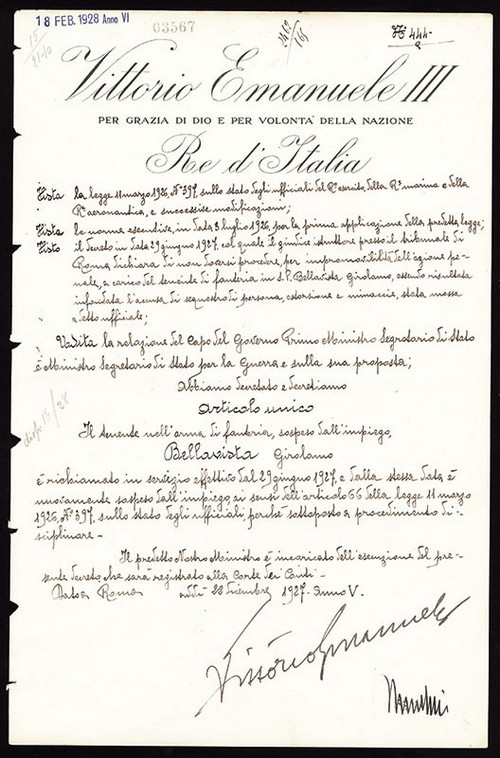 18 FEB. 1928 Anno VI
03567
N 444
Vittorio Emanuele III
PER GRAZIA DI DIO E PER VOLONTA' DELLA NAZIONE
Re d'Italia
Vista la legge 11 marzo 1926, N° 397, sullo stato degli ufficiali del R° esercito, della R° marina e della
R° aeronautica, e successive modificazioni;
Viste le norme esecutive, in data 8 luglio 1926, per la prima applicazione della predetta legge;
Visto il decreto in data 29 giugno 1927, col quale il giudice istruttore presso il tribunale di
Roma dichiara di non doversi procedere, per impromovibilità dell'azione pe-
nale, a carico del tenente di fanteria in s.P. Bellavista Girolamo, essendo risultata
infondata l'accusa di sequestro di persona, estorsione e minaccie, stata mossa
a detto ufficiale;
Udita la relazione del Capo del Governo Primo Ministro Segretario di Stato
e Ministro Segretario di Stato per la Guerra e sulla sua proposta;
Abbiamo decretato e decretiamo
Articolo unico
Il tenente nell'arma di fanteria, sospeso dall'impiego,
Bellavista Girolamo
è richiamato in servizio effettivo dal 29 giugno 1927, e dalla stessa data è
nuovamente sospeso dall'impiego, ai sensi dell'articolo 66 della legge 11 marzo
1926, N° 397, sullo stato degli ufficiali, perchè sottoposto a procedimento di-
sciplinare -
Il predetto Nostro Ministro è incaricato dell'esecuzione del pre-
sente decreto, che sarà registrato alla Corte dei Conti -
Dato a Roma addì 28 dicembre 1927 - Anno V.
Vittorio Emanuele